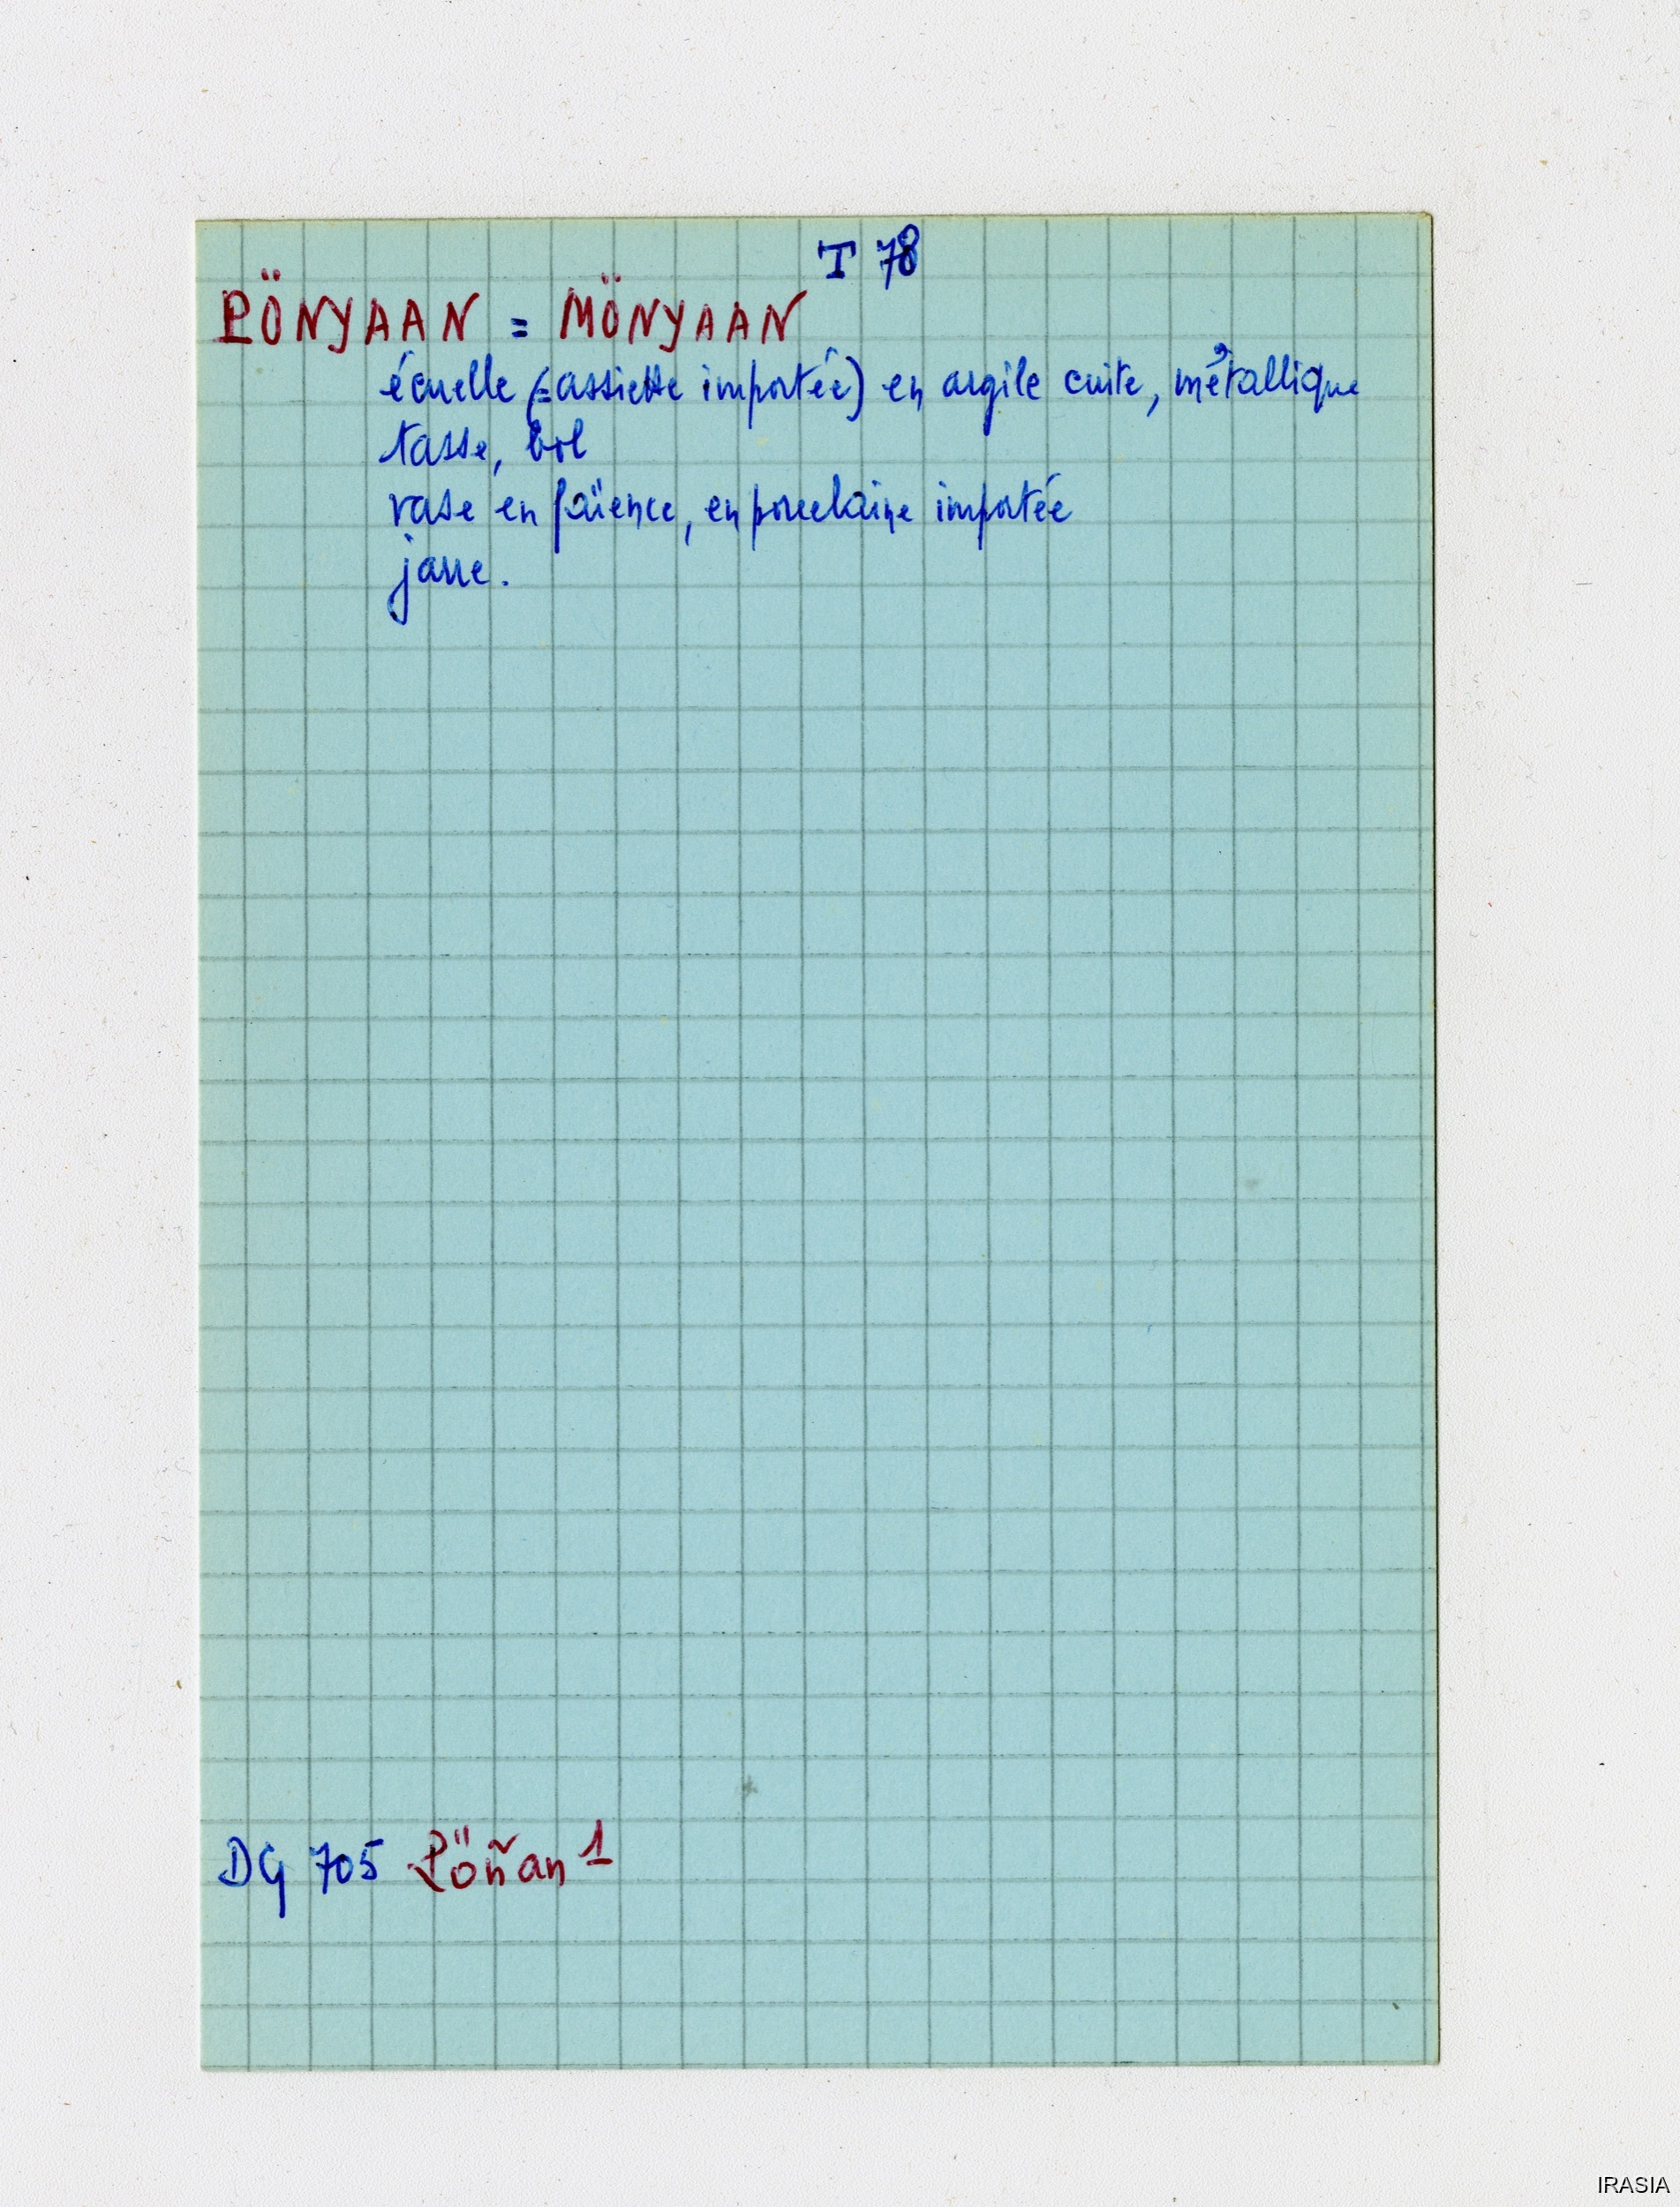 T 78
PÖNYAAN = MÖNYAAN
écuelle (= assiette importée) en argile cuite, métallique
tasse, bol
vase en faïence, en porcelaine importée
jarre.
DG 705 Pöñan 1
IRASIA